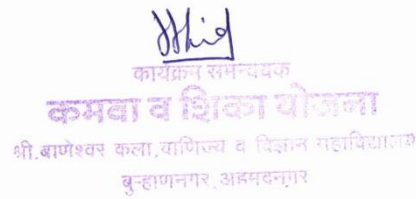 कार्यक्रम समन्वयक
कमवा व शिका योजना
श्री.बाणेश्वर कला,वाणिज्य व विज्ञान महाविद्यालय
बुऱ्हाणनगर,अहमदनगर